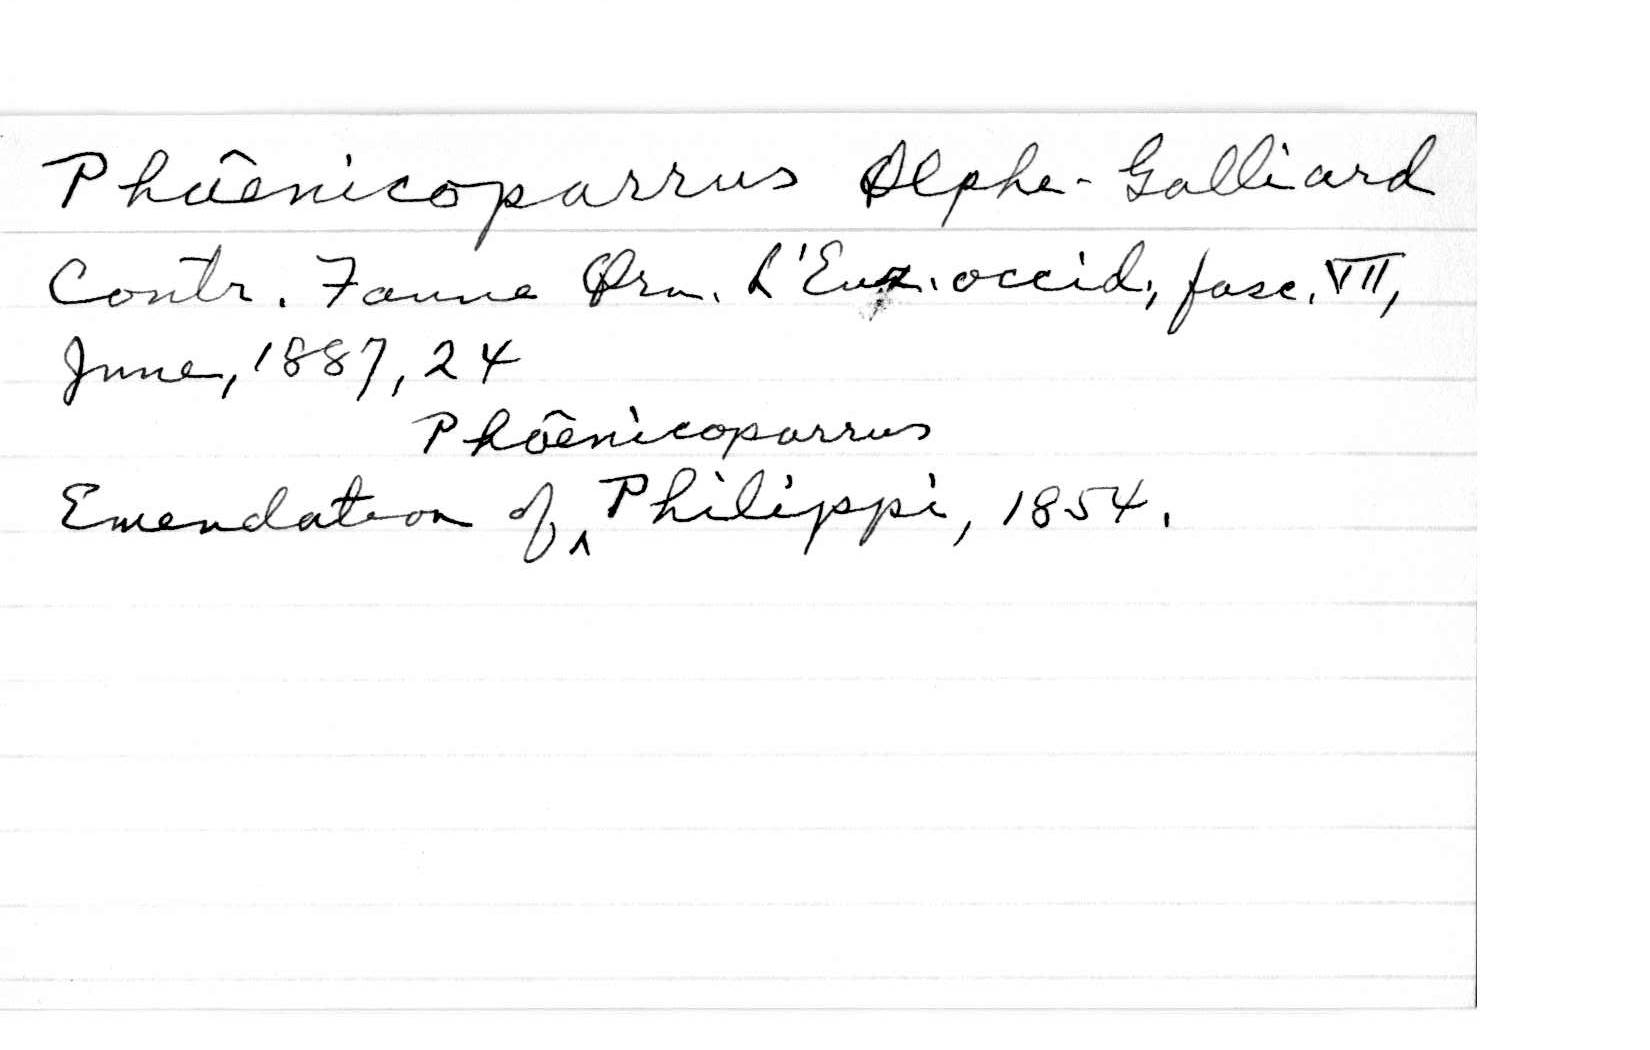 Phâenicoparrus Alphe-Galliard
Contr. Faune Orn. L'Eur. occid., fasc. VII,
June, 1887, 24
Phôenicoparrus
Emendation of ^ Philippi, 1854.